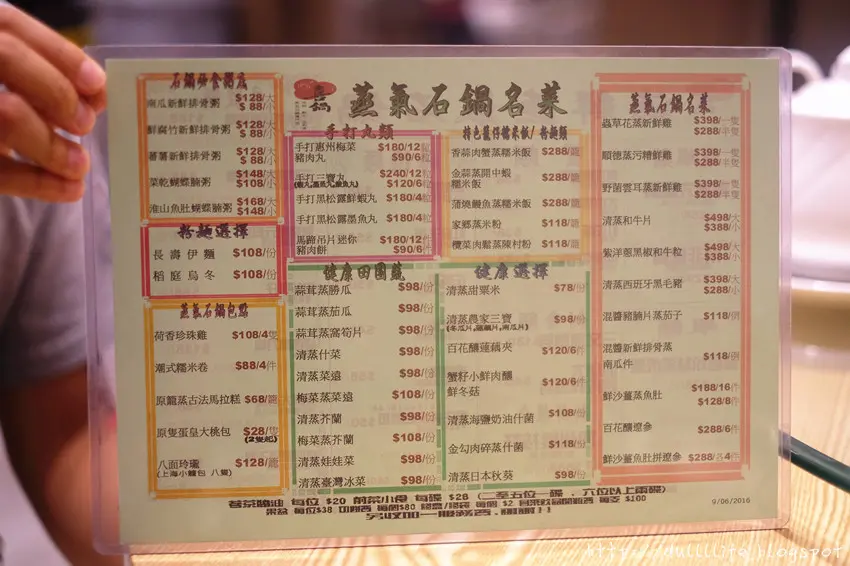 蒸氣石鍋名菜
南瓜新鮮排骨粥 $128/大 $88/小
鮮腐竹新鮮排骨粥 $128/大 $88/小
蕃薯新鮮排骨粥 $128/大 $88/小
菜乾蝴蝶腩粥 $148/大 $108/小
淮山魚肚蝴蝶腩粥 $168/大 $148/小
粉麵選擇
長壽伊麵 $108/份
稻庭烏冬 $108/份
蒸氣石鍋包點
荷香珍珠雞 $108/4隻
潮式糯米卷 $88/4件
原籠蒸古法馬拉糕 $68/籠
原隻蛋皇大桃包 $28/隻
(2隻起)
八面玲瓏 $128/籠
(上海小籠包 八隻)
手打丸類
手打惠州梅菜豬肉丸 $180/12粒 $90/6粒
手打三寶丸 $240/12粒 $120/6粒
手打黑松露鮮蝦丸 $180/4粒
手打黑松露墨魚丸 $180/4粒
馬蹄吊片迷你豬肉餅 $180/12件 $90/6件
健康田園蔬
蒜茸蒸勝瓜 $98/份
蒜茸蒸茄瓜 $98/份
蒜茸蒸萵筍片 $98/份
清蒸什菜 $98/份
清蒸菜遠 $98/份
梅菜蒸菜遠 $108/份
清蒸芥蘭 $98/份
梅菜蒸芥蘭 $108/份
清蒸娃娃菜 $98/份
清蒸臺灣冰菜 $98/份
特色薑仔糯米飯/粉麵類
香蒜肉蟹蒸糯米飯 $288/籠
金蒜蒸開中蝦糯米飯 $288/籠
蒲燒鰻魚蒸糯米飯 $288/籠
家鄉蒸米粉 $118/籠
欖菜肉鬆蒸陳村粉 $118/籠
健康選擇
清蒸甜粟米 $78/份
清蒸農家三寶 $98/份
(冬瓜片,蓮藕片,南瓜片)
百花釀蓮藕夾 $120/6件
蟹籽小鮮肉釀鮮冬菇 $120/6件
清蒸海鹽奶油什菌 $108/份
金勾肉碎蒸什菌 $118/份
清蒸日本秋葵 $98/份
蒸氣石鍋名菜
蟲草花蒸新鮮雞 $398/一隻 $288/半隻
順德蒸污糟鮮雞 $398/一隻 $288/半隻
野菌雲耳蒸新鮮雞 $398/一隻 $288/半隻
清蒸和牛片 $498/大 $388/小
紫洋蔥黑椒和牛粒 $498/大 $388/小
清蒸西班牙黑毛豬 $398/大 $288/小
混醬豬腩片蒸茄子 $118/例
混醬新鮮排骨蒸南瓜件 $118/例
鮮沙薑蒸魚肚 $188/16件 $128/8件
百花釀遼參 $288/6件
鮮沙薑魚肚拼遼參 $288/各4件
9/06/2016